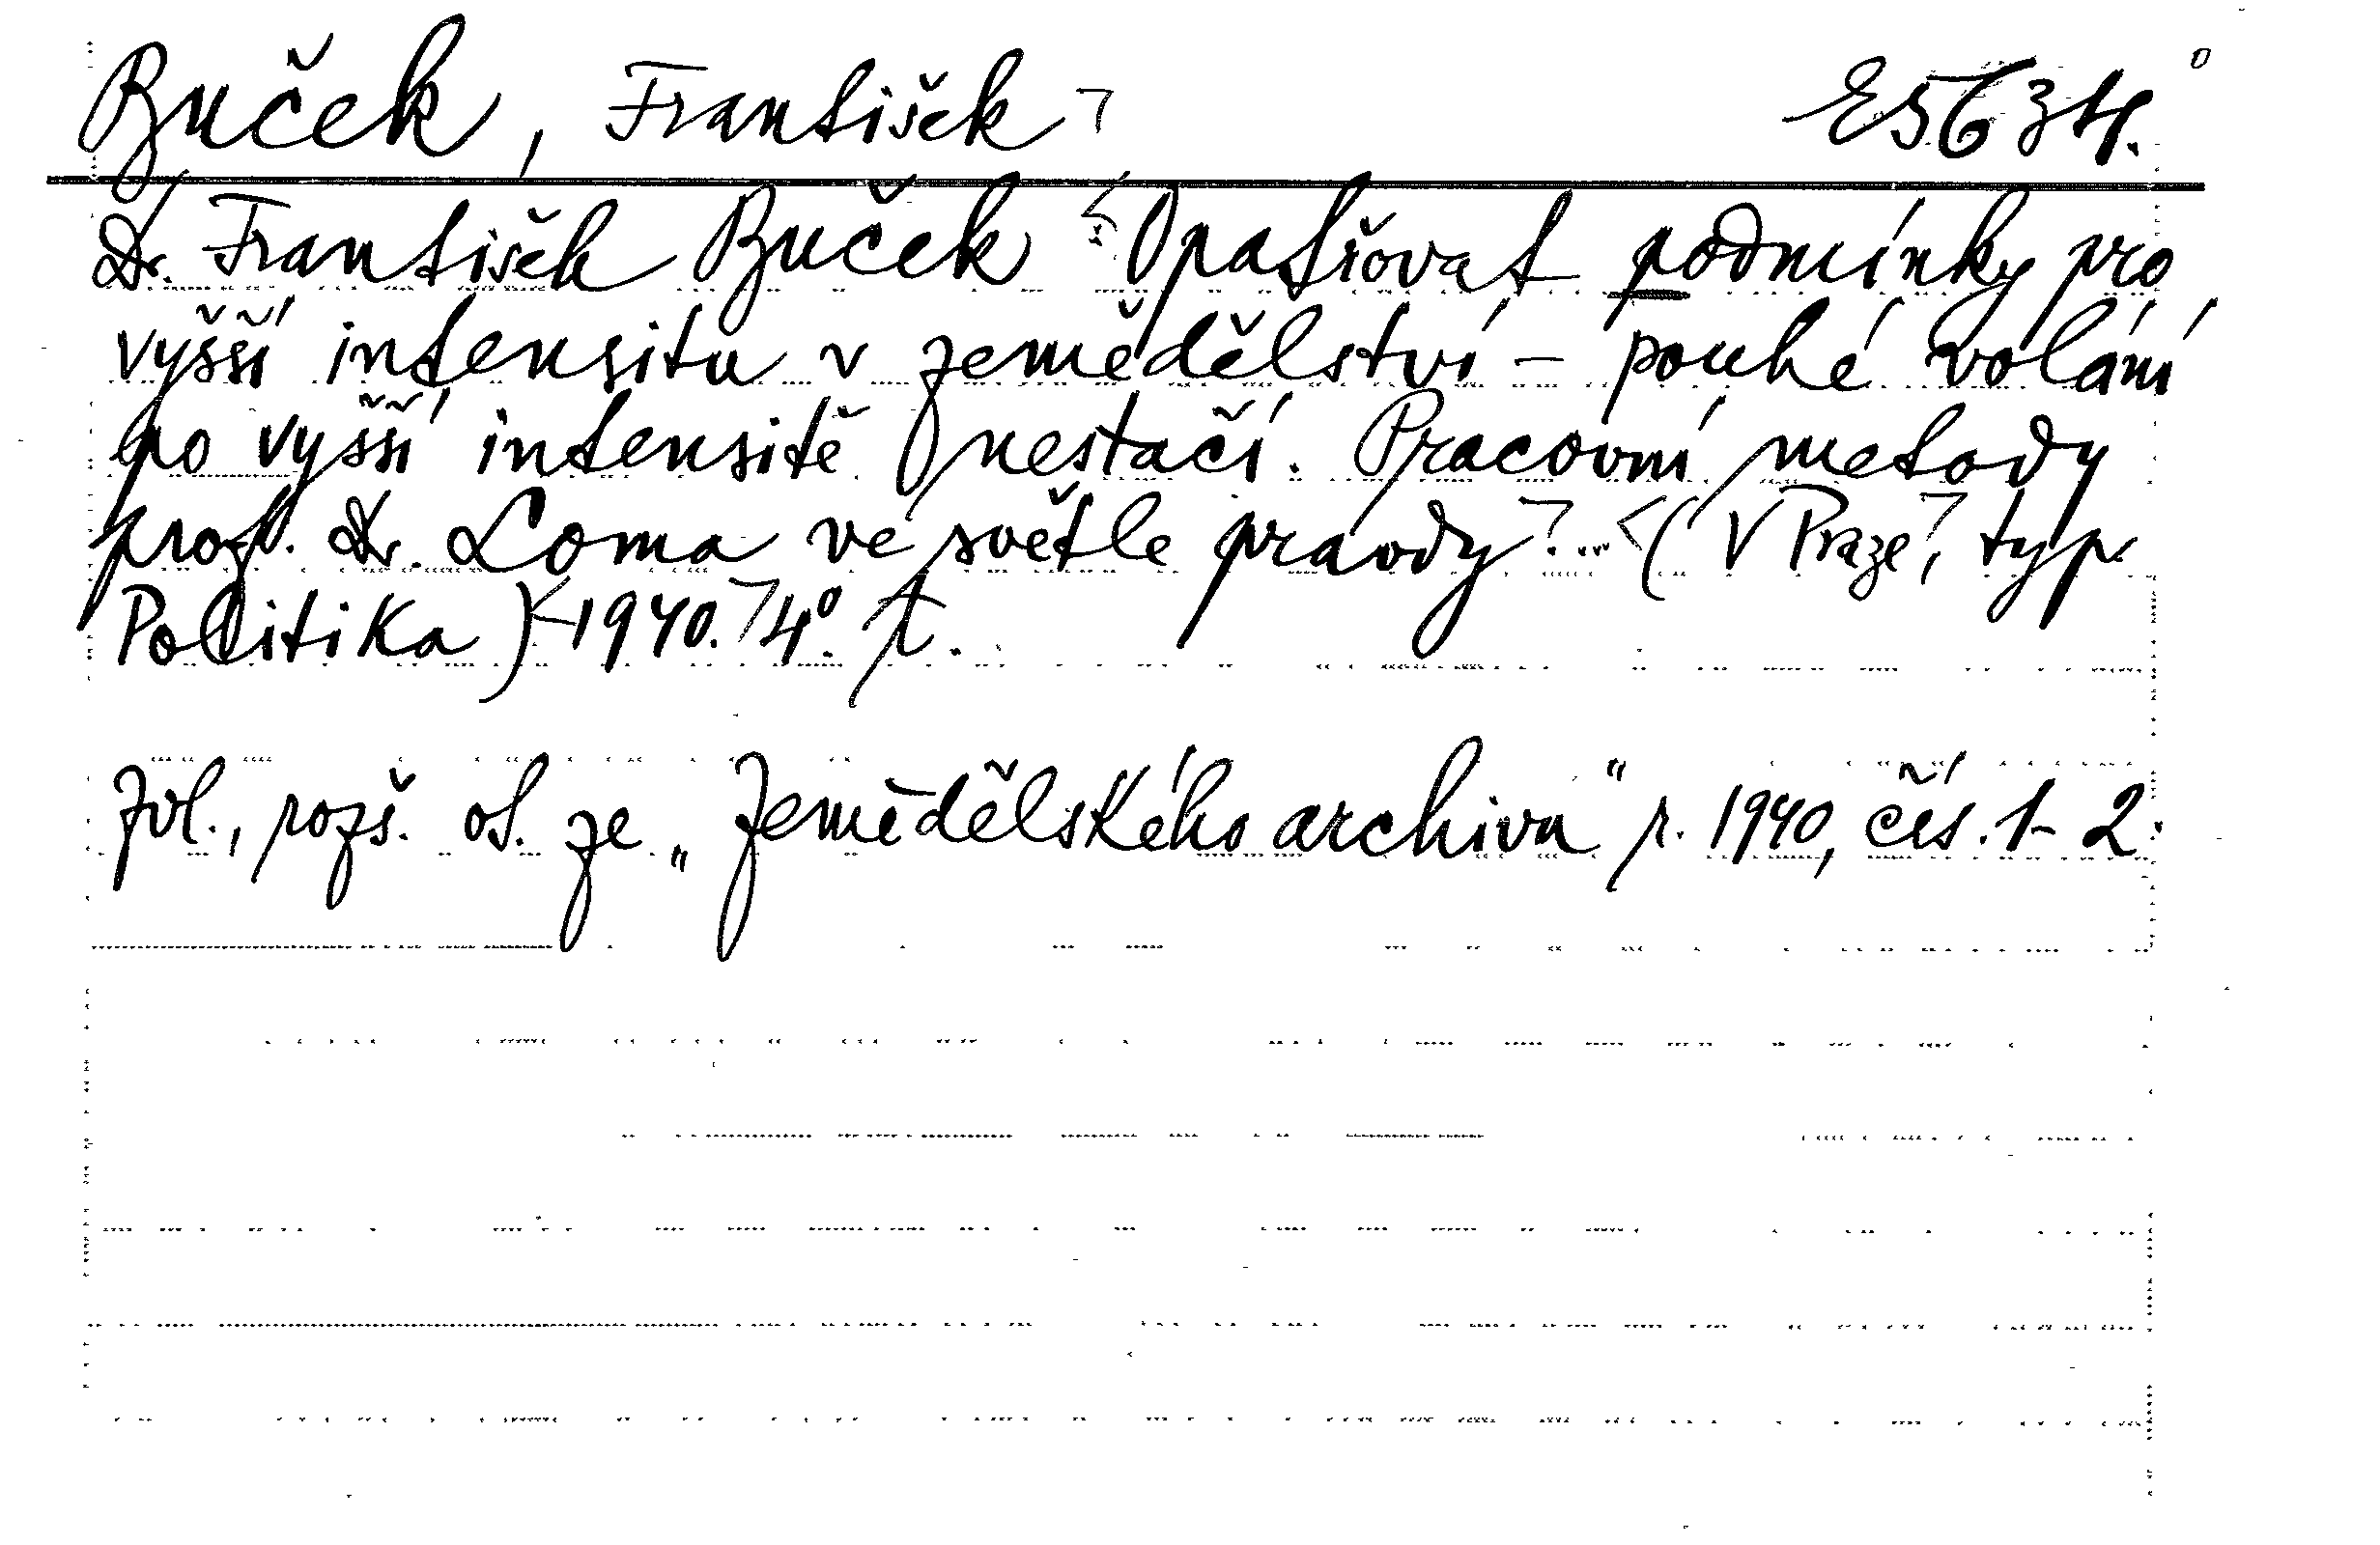 Buček, František E5634.
Dr. František Buček Opatřovat podmínky pro
vyšší intensitu v zemědělství – pouhé volání
po vyšší intensitě nestačí. Pracovní metody
prof. Dr. Loma ve světle pravdy ... (V Praze, typ.
Politika) 1940. 4°.
Zvl., rozš. ot. ze „Zemědělského archivu“ r. 1940, čís. 1-2.